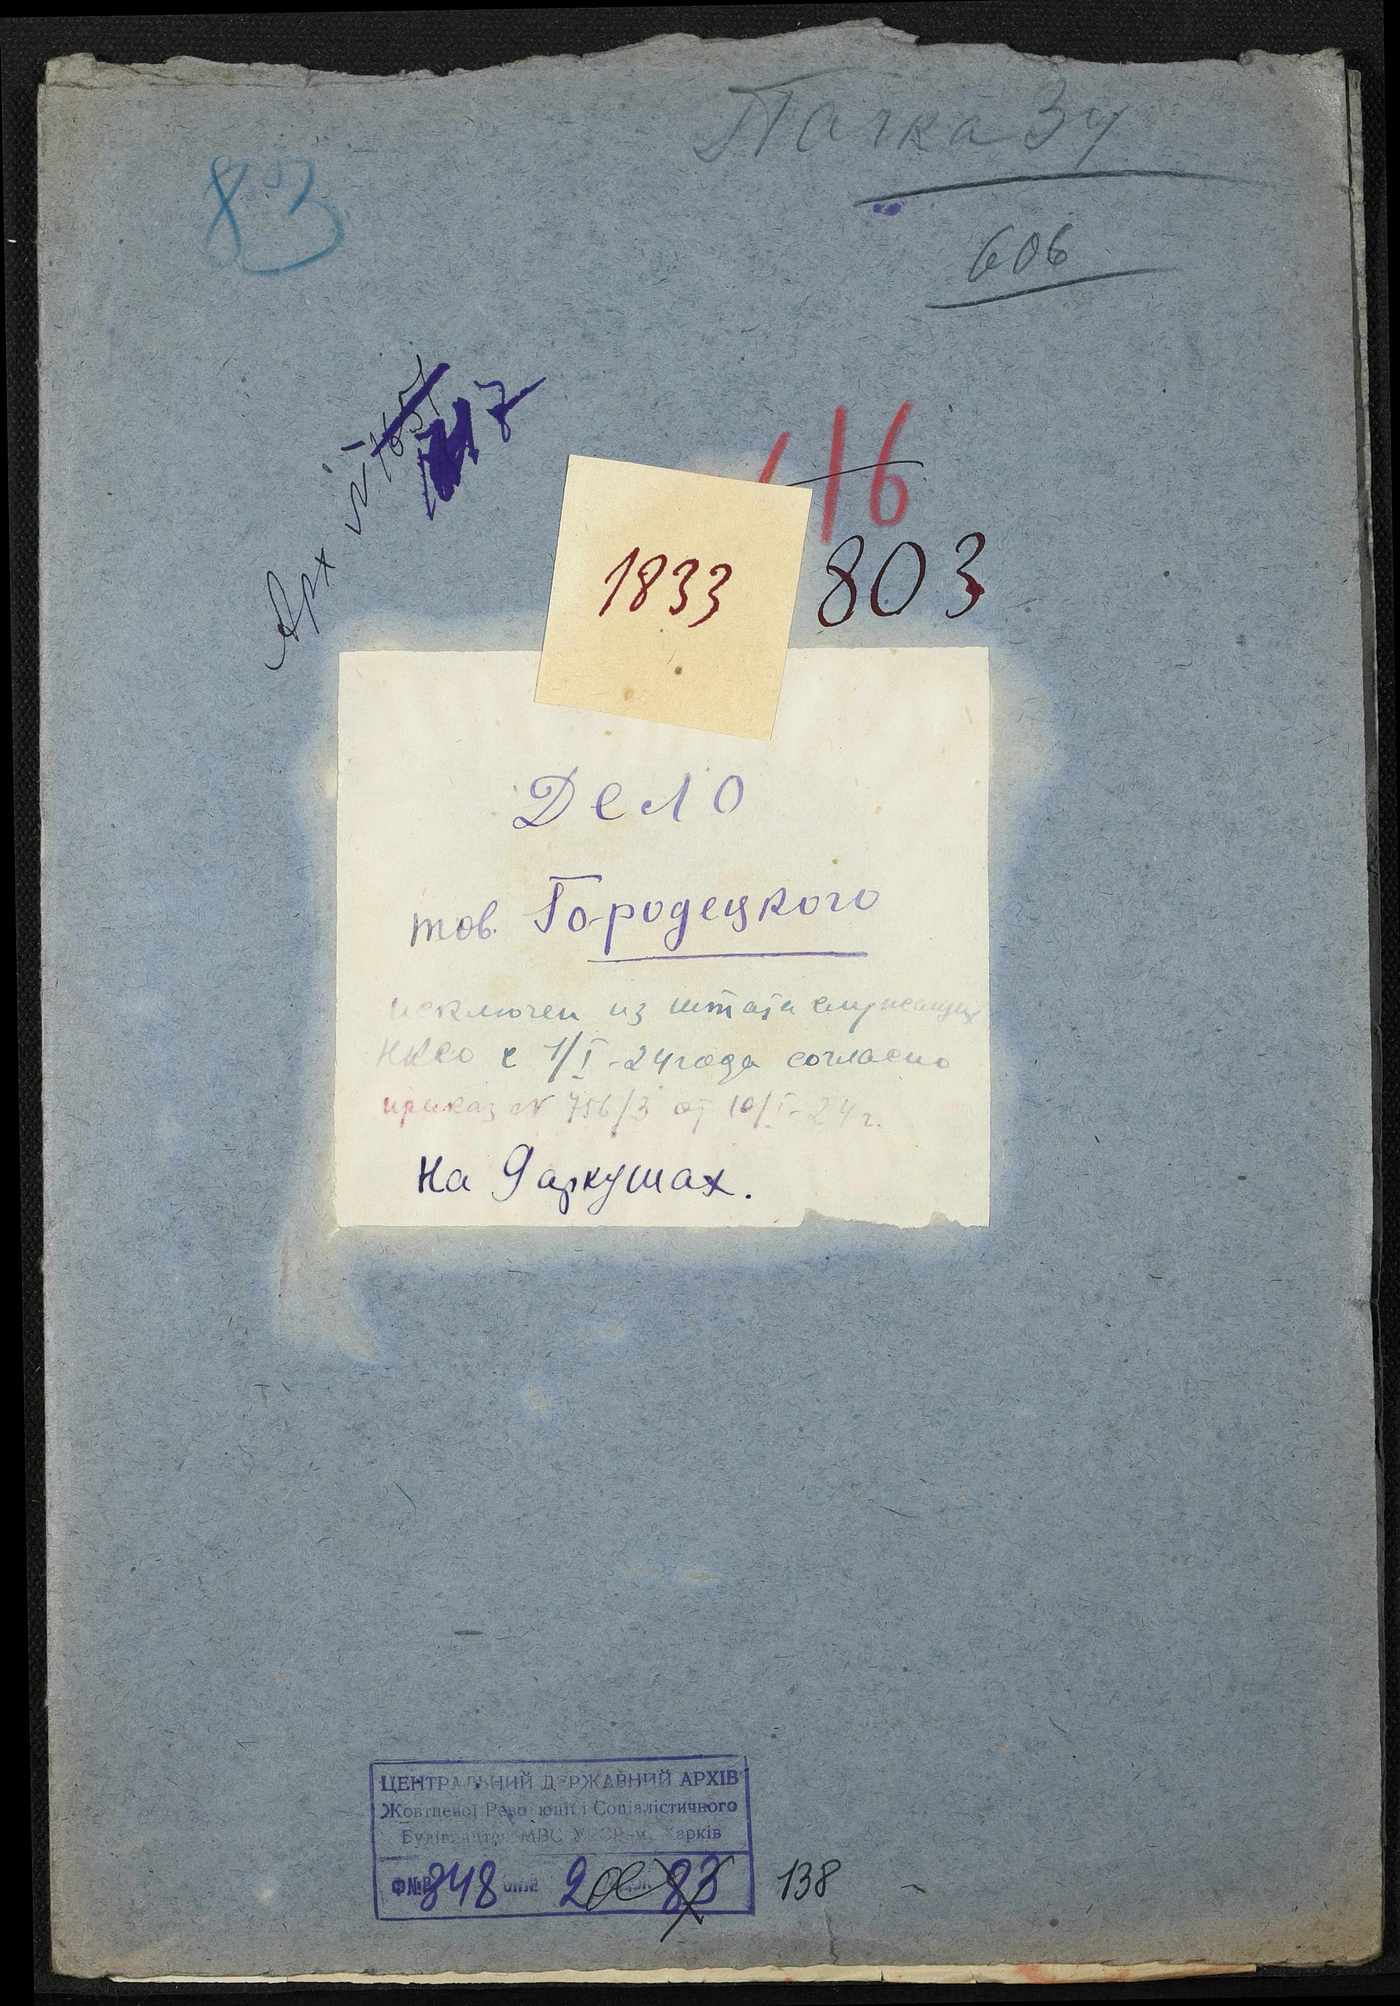 Пачка 34
83
606
Арх № 1657
116
1833
803
Дело
тов. Городецкого
исключен из штата служащих
НКСО с 1/I-24 года согласно
приказ № 756/3 от 10/I-24 г.
на 9 аркушах.
ЦЕНТРАЛЬНИЙ ДЕРЖАВНИЙ АРХІВ
Жовтневої Революції і Соціалістичного
Будівництва МВС УРСР м. Харків
Ф№ 348 опис 2 83 138